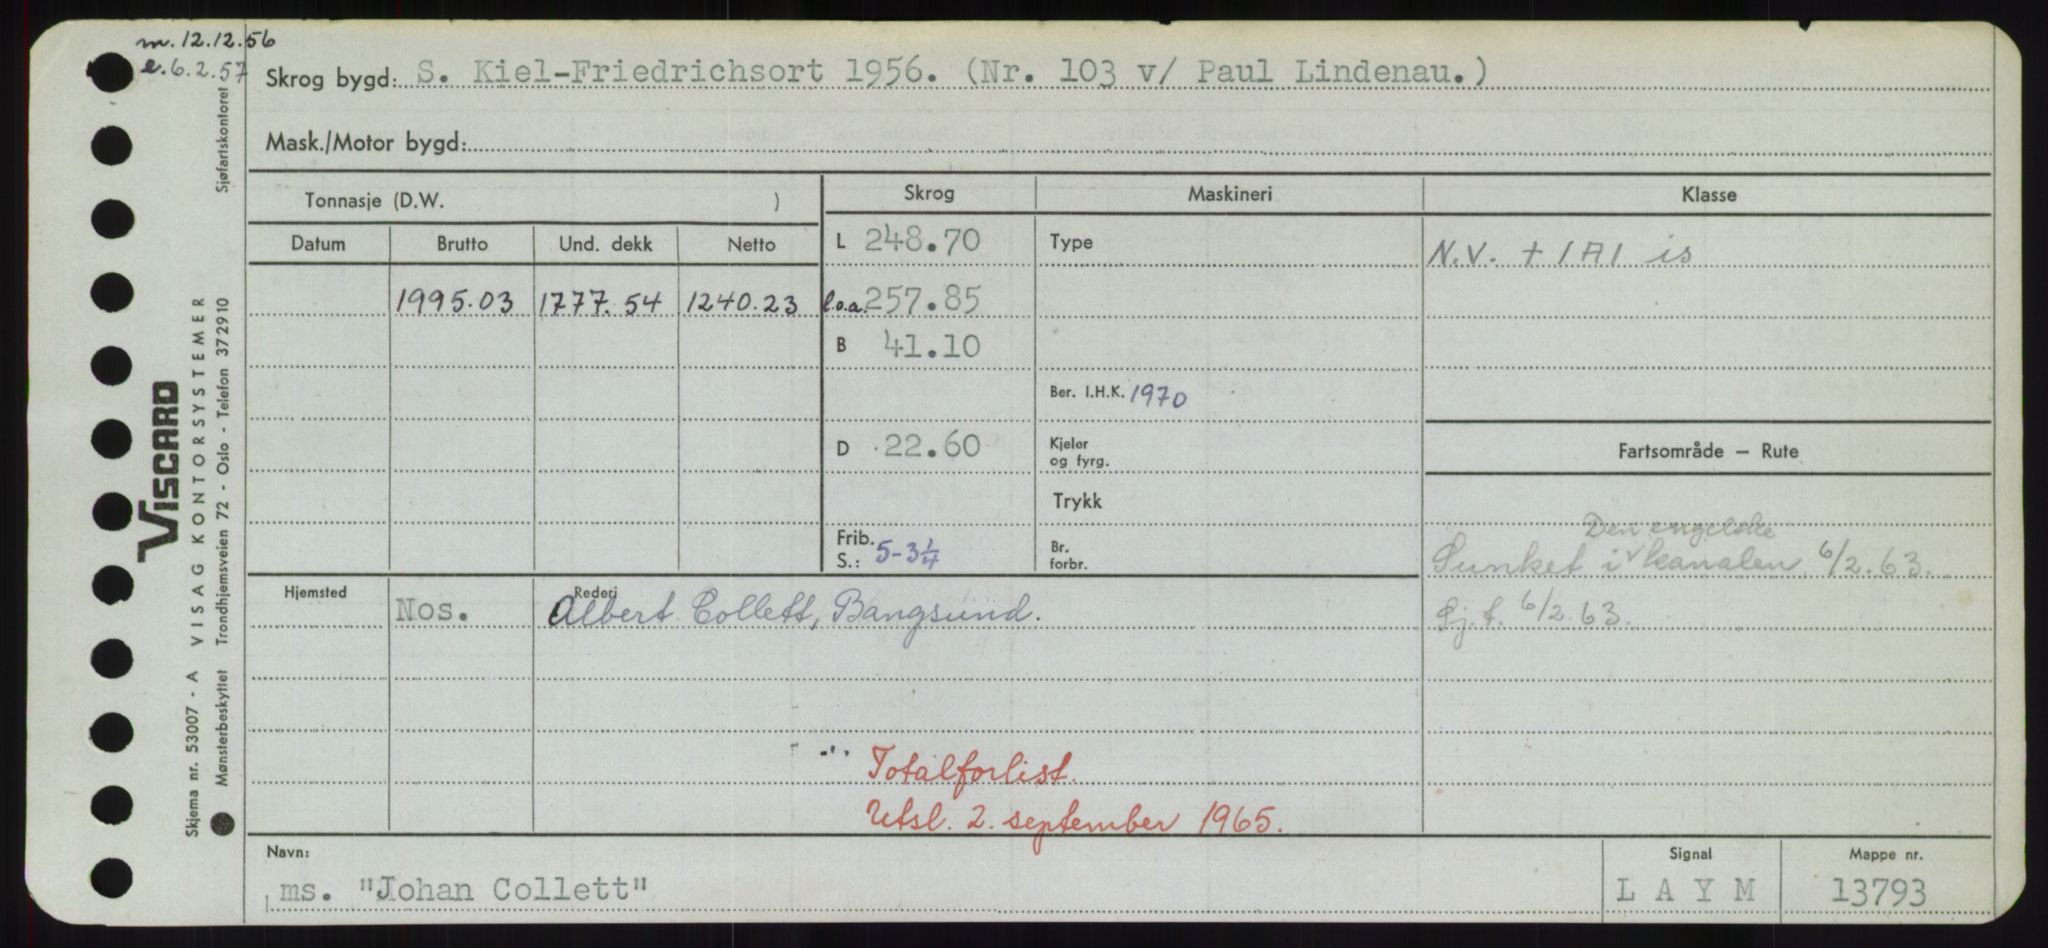 m. 12.12.56
e. 6.2.57
Skrog bygd: S. Kiel-Friedrichsort 1956. (Nr. 103 v/ Paul Lindenau.)
Mask./Motor bygd:
Tonnasje (D.W. )
Skrog
Maskineri
Klasse
Datum
Brutto
Und. dekk
Netto
L 248.70
Type
N.V. + 1A1 is
1995.03 1777.54 1240.23
l.o.a. 257.85
B 41.10
Ber. I.H.K. 1970
D 22.60
Kjeler
og fyrg.
Fartsområde — Rute
Trykk
Frib.
S.: 5-3 1/4
Br.
forbr.
Den engelske
Sunket i kanalen 6/2.63.
Sj.f. 6/2.63.
Hjemsted
Nos.
Rederi
Albert Collett, Bangsund.
Totalforlist.
Utsl. 2. september 1965.
Navn:
ms. "Johan Collett"
Signal
L A Y M
Mappe nr.
13793
VISCARD
Skjema nr. 53007 - A VISAG KONTORSYSTEMER
Mønsterbeskyttet Trondhjemsveien 72 - Oslo - Telefon 372910
Sjøfartskontoret